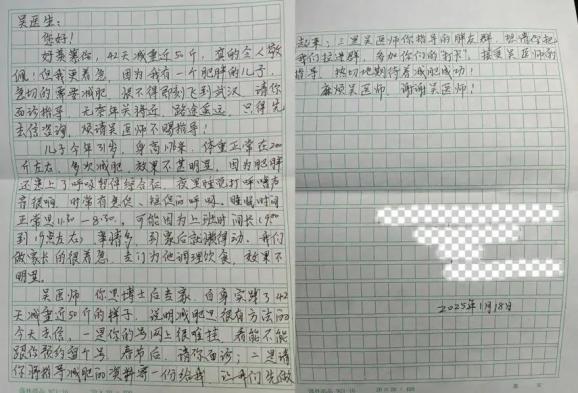 吴医生：
您好！
好羡慕你，42天减重近50斤，真的令人敬
佩！但我更着急，因为我有一个肥胖的儿子，
急切的需要减肥，恨不得即刻飞到武汉，请你
面诊指导，无奈年关将近，路途遥远，只得先
去信咨询，烦请吴医师不赐指导！
儿子今年31岁，身高178米，体重正常在200
斤左右，多次减肥，效果不甚明显，因为肥胖
还患上了呼吸暂停综合征，夜里睡觉打呼噜声
音很响，时常有急促、短促的呼吸，睡眠时间
正常是11:30—8:30。可能因为上班时间长（9:00
到19点左右），事情多，到家后就懒得动。我们
做家长的很着急，专门为他调理饮食，效果不
明显。
吴医师，你是博士后专家，自身实践了42
天减重近50斤的样子，说明减肥是很有方法的
今天去信，一是你的号网上很难挂，看能不能
跟你预约留个号，春节后，请你面诊；二是请
你将指导减肥的资料寄一份给我，让我们先做
起来；三是吴医师你指导的胖友群，想请你把
我们拉进群，参加你们的“打卡”，接受吴医师的
指导，热切地期待着减肥成功！
麻烦吴医师，谢谢吴医师！
2025年1月18日